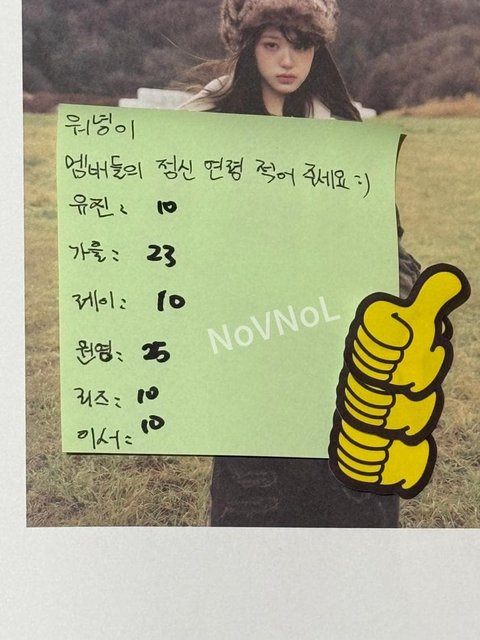 워녕이
멤버들의 정신 연령 적어 주세요:)
유진: 10
가을: 23
레이: 10
원영: 25
리즈: 10
이서: 10
NoVNoL